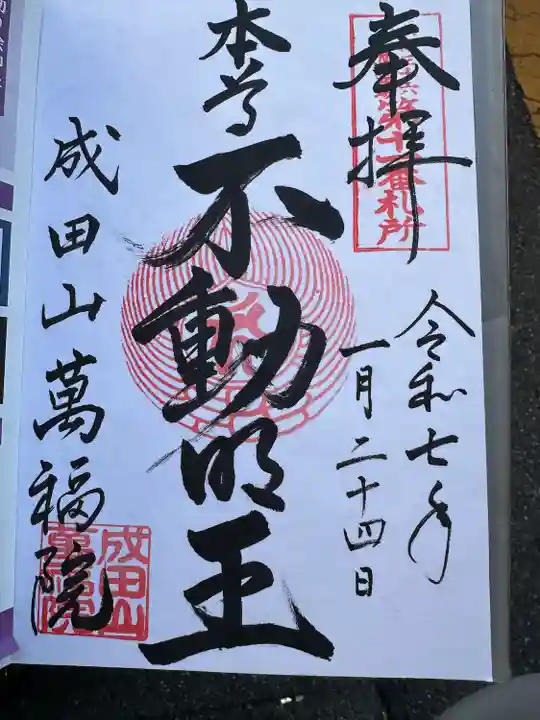 奉拝
番札所
令和七年
一月二十四日
本尊
不動明王
成田山萬福院
成田山
萬福院